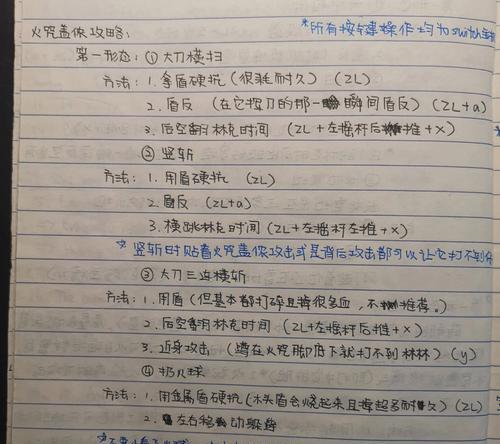 火咒盖侬攻略:
*所有按键操作均为switch
第一形态: ① 大刀横扫
方法: 1. 拿盾硬抗 (很耗耐久) (ZL)
2. 盾反 (在它挥刀的那一瞬间盾反) (ZL+a)
3. 后空翻林克时间 (ZL+左摇杆后推+X)
② 竖斩
方法: 1. 用盾硬抗 (ZL)
2. 盾反 (ZL+a)
3. 横跳林克时间 (ZL+左摇杆左推+X)
* 竖斩时贴着火咒盖侬攻击或是背后攻击都可以让它打不到你
③ 大刀三连横斩
方法: 1. 用盾 (但基本都打碎且掉很多血, 不推荐。)
2. 后空翻林克时间 (ZL+左摇杆后推+X)
3. 近身攻击 (蹲在火咒脚底下就打不到林林) (y)
④ 扔火球
方法: 1. 用金属盾硬抗 (木头盾会烧起来且掉超多耐久) (ZL)
2. 左右移动躲避